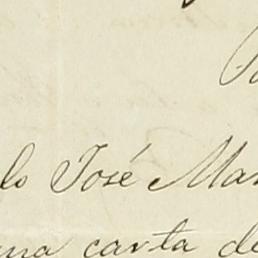 lo José Mar
una carta de